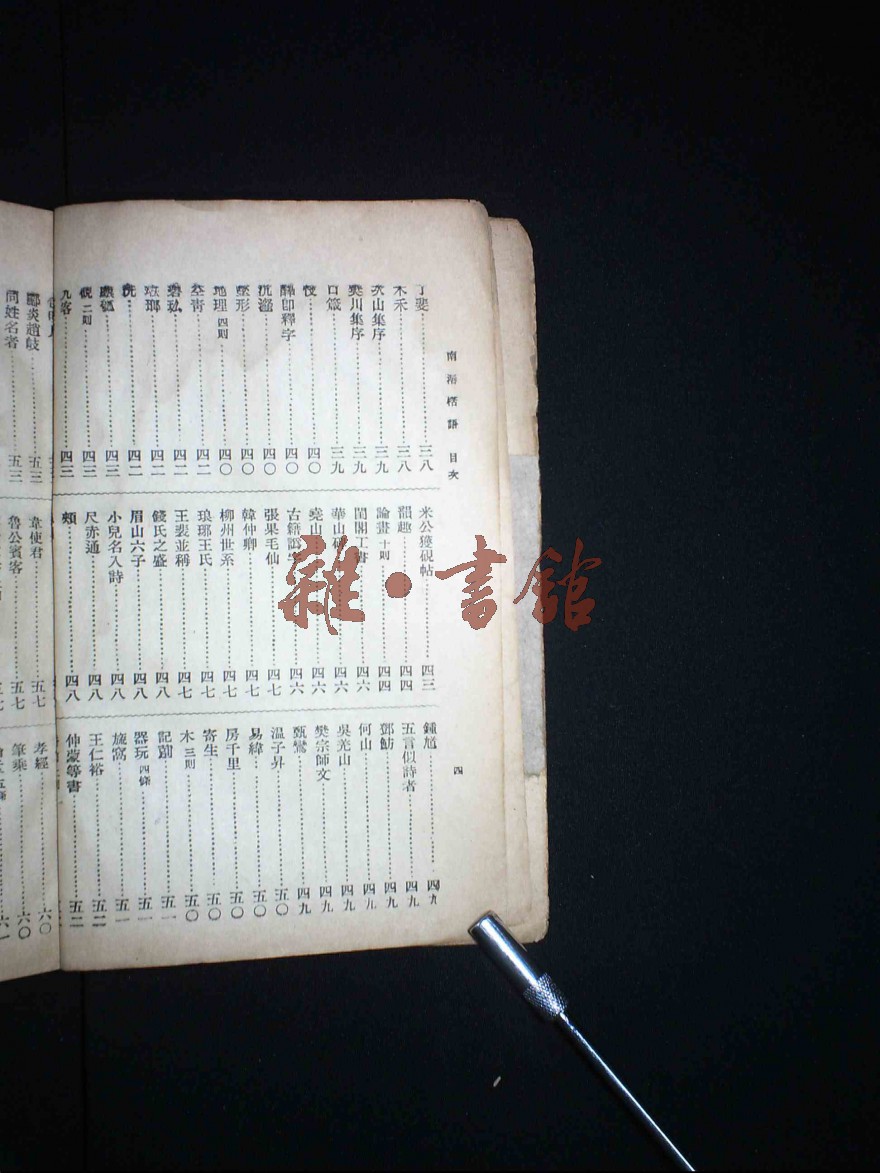 南漘楛語 目次
四
丁斐……三八
木禾……三八
次山集序……三九
樊川集序……三九
口箴……三九
醉印釋字……四〇
沆瀣……四〇
墜形……四〇
地理四則……四〇
空青……四二
碧瓐……四二
琺瑯……四二
四二
四三
硯二則……四三
九客……四三
米公獲硯帖……四三
韻趣……四四
論畫十則……四四
閨閣工書……四六
華山……四六
堯山……四六
古籍……四六
張果毛仙……四七
韓仲卿……四七
柳州世系……四七
琅琊王氏……四七
王裴並稱……四七
錢氏之盛……四八
眉山六子……四八
小兒名入詩……四八
尺赤通……四八
頰……四八
鍾馗……四九
五言似詩者……四九
鄧魴……四九
何山……四九
吳羌山……四九
樊宗師文……四九
甄鸞……四九
溫子昇……五〇
易緯……五〇
房千里……五〇
寄生……五〇
木三則……五〇
記菌……五一
器玩四條……五一
旅窩……五一
王仁裕……五二
仲蒙等書……五二
酈炎趙岐……五三
同姓名者……五三
韋使君……五七
魯公賓客……五七
孝經……六〇
筆乘……六〇
雜·書館